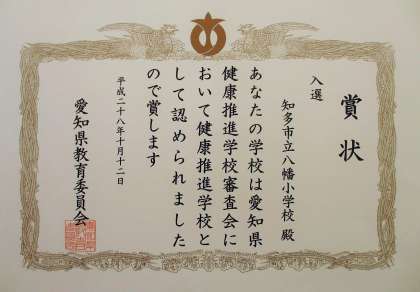 賞状
入選
知多市立八幡小学校 殿
あなたの学校は愛知県
健康推進学校審査会に
おいて健康推進学校と
して認められました
ので賞します
平成二十八年十月十二日
愛知県教育委員会